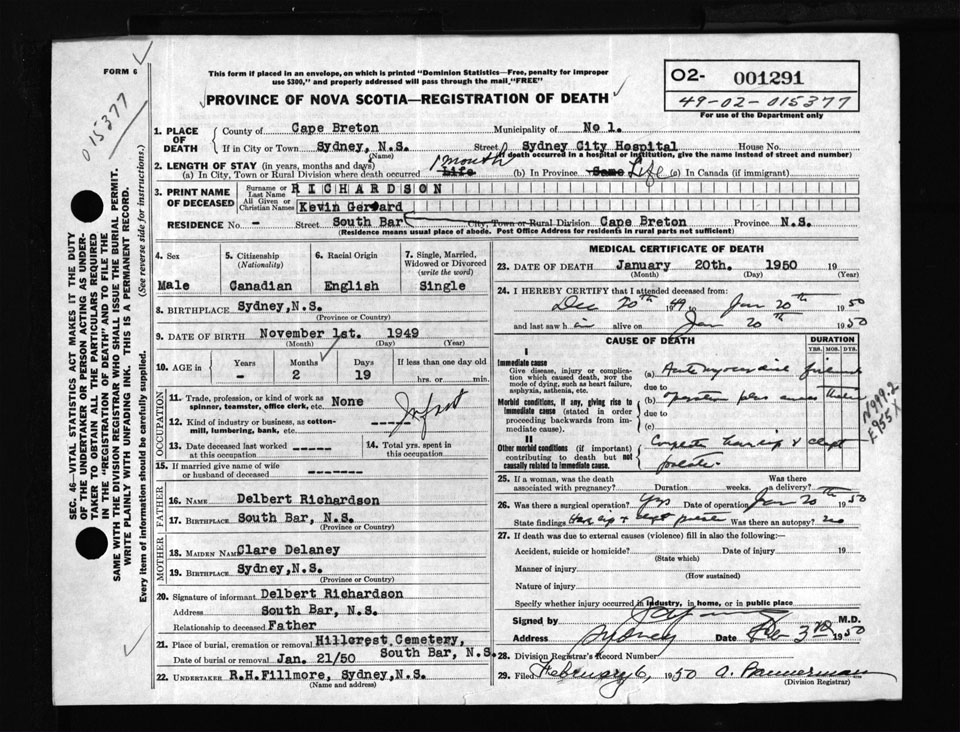 FORM 6
This form if placed in an envelope, on which is printed "Dominion Statistics—Free, penalty for improper
use $300," and properly addressed will pass through the mail "FREE"
PROVINCE OF NOVA SCOTIA—REGISTRATION OF DEATH
O2- 001291
49-02-015377
For use of the Department only
015377
SEC. 46—VITAL STATISTICS ACT MAKES IT THE DUTY
OF THE UNDERTAKER OR PERSON ACTING AS UNDER-
TAKER TO OBTAIN ALL THE PARTICULARS REQUIRED
IN THE "REGISTRATION OF DEATH" AND TO FILE THE
SAME WITH THE DIVISION REGISTRAR WHO SHALL ISSUE THE BURIAL PERMIT.
WRITE PLAINLY WITH UNFADING INK. THIS IS A PERMANENT RECORD.
Every item of information should be carefully supplied. (See reverse side for instructions.)
1. PLACE OF DEATH
County of Cape Breton Municipality of No 1.
If in City or Town Sydney, N.S. Street Sydney City Hospital House No
(Name) (If death occurred in a hospital or institution, give the name instead of street and number)
2. LENGTH OF STAY (in years, months and days)
(a) In City, Town or Rural Division where death occurred Life 1 month (b) In Province Same Life (c) In Canada (if immigrant)
3. PRINT NAME OF DECEASED
Surname or Last Name RICHARDSON
All Given or Christian Names Kevin Gerard
RESIDENCE No. - Street South Bar City, Town or Rural Division Cape Breton Province N.S.
(Residence means usual place of abode. Post Office Address for residents in rural parts not sufficient)
4. Sex Male
5. Citizenship (Nationality) Canadian
6. Racial Origin English
7. Single, Married, Widowed or Divorced (write the word) Single
8. BIRTHPLACE Sydney, N.S.
(Province or Country)
9. DATE OF BIRTH November 1st. 1949
(Month) (Day) (Year)
10. AGE in Years - Months 2 Days 19 If less than one day old hrs. or min.
OCCUPATION
11. Trade, profession, or kind of work as spinner, teamster, office clerk, etc. None
Infant
12. Kind of industry or business, as cotton-mill, lumbering, bank, etc. -----
13. Date deceased last worked at this occupation -----
14. Total yrs. spent in this occupation -----
15. If married give name of wife or husband of deceased -------
FATHER
16. NAME Delbert Richardson
17. BIRTHPLACE South Bar, N.S.
(Province or Country)
MOTHER
18. MAIDEN NAME Clare Delaney
19. BIRTHPLACE Sydney, N.S.
(Province or Country)
20. Signature of informant Delbert Richardson
Address South Bar, N.S.
Relationship to deceased Father
21. Place of burial, cremation or removal Hillcrest Cemetery,
South Bar, N.S.
Date of burial or removal Jan. 21/50
22. UNDERTAKER R.H.Fillmore, Sydney, N.S.
(Name and Address)
MEDICAL CERTIFICATE OF DEATH
23. DATE OF DEATH January 20th. 1950 19
(Month) (Day) (Year)
24. I HEREBY CERTIFY that I attended deceased from:
Dec 20th 49 to Jan 20th 1950
and last saw him alive on Jan 20th 1950
CAUSE OF DEATH DURATION
YRS. MOS. DYS.
I
Immediate cause
Give disease, injury or complication which caused death, NOT the mode of dying, such as heart failure, asphyxia, asthenia, etc.
(a)
due to
Morbid conditions, if any, giving rise to Immediate cause (stated in order proceeding backwards from immediate cause).
(b)
due to
(c)
II
Other morbid conditions (if important) contributing to death but not causally related to immediate cause.
harelip & cleft
palate
N999.2
E955X
25. If a woman, was the death associated with pregnancy? Duration weeks. Was there a delivery?
26. Was there a surgical operation? Yes Date of operation Jan 20th 1950
State findings Was there an autopsy? no
27. If death was due to external causes (violence) fill in also the following:—
Accident, suicide or homicide? Date of injury 19
(State which)
Manner of injury
(How sustained)
Nature of injury
Specify whether injury occurred in industry, in home, or in public place
Signed by M.D.
Address Sydney Date Feb 3rd 1950
28. Division Registrar's Record Number
29. Filed February 6, 1950 A. Bannerman
(Division Registrar)